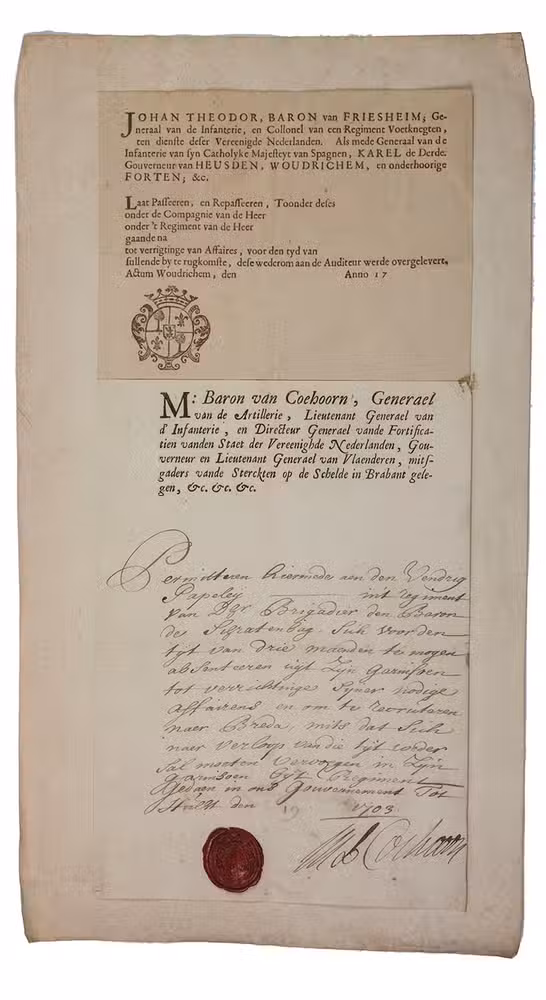 JOHAN THEODOR, BARON van FRIESHEIM; Ge-
neraal van de Infanterie, en Collonel van een Regiment Voetknegten,
ten dienste deser Vereenigde Nederlanden. Als mede Generaal van de
Infanterie van syn Catholyke Majesteyt van Spagnen, KAREL de Derde.
Gouverneur van HEUSDEN, WOUDRICHEM, en onderhoorige
FORTEN; &c.
Laat Passeeren, en Repasseeren, Toonder deses
onder de Compagnie van de Heer
onder 't Regiment van de Heer
gaande na
tot verrigtinge van Affaires, voor den tyd van
sullende by te rugkomste, dese wederom aan de Auditeur werde overgelevert.
Actum Woudrichem, den Anno 17
M: Baron van Coehoorn, Generael
van de Artillerie, Lieutenant Generael van
d' Infanterie, en Directeur Generael vande Fortifica-
tien vanden Staet der Vereenighde Nederlanden, Gou-
verneur en Lieutenant Generael van Vlaenderen, mits-
gaders vande Sterckten op de Schelde in Brabant gele-
gen, &c. &c. &c.
Permitteren hiermede aen den Vendrig
Papeley mit regiment
van Brigadier den Baron
de sich voor den
tijt van drie maenden te mogen
absenteren uijt zijn garnisoen
tot verrichtinge sijner nodige
affairens, en om te recruteren
naer Breda, mits dat sich
naer verloop van die tijt sonder
sal moeten vervoegen in zijn
garnisoen bijt Regiment
Gedaen in ons Gouvernement Tot
den 1703